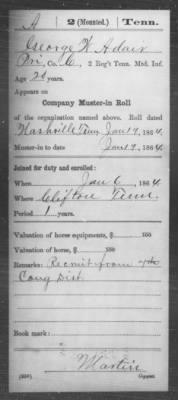 A 2 (Mounted.) Tenn.
George W Adair
Pri, Co. C, 2 Reg't Tenn. Mtd. Inf.
Age 21 years.
Appears on
Company Muster-in Roll
of the organization named above. Roll dated
Nashville Tenn, Jan 19, 1864.
Muster-in to date Jan 19, 1864.
Joined for duty and enrolled:
When Jan 6, 1864.
Where Clifton Tenn.
Period 1 years.
Valuation of horse equipments, $ 100
Valuation of horse, $ 100
Remarks: Recruit from 7th
Cong Dist.
Book mark:
Martin
(356) Copyist.